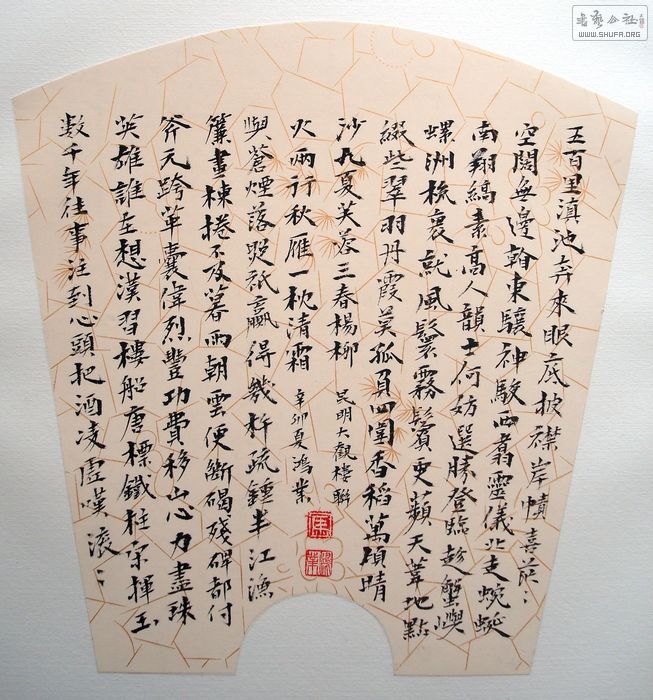 五百里滇池奔來眼底披襟岸幘喜茫〻
空闊無邊看東驤神駿西翥靈儀北走蜿蜒
南翔縞素高人韻士何妨選勝登臨趁蟹嶼
螺洲梳裹就風鬟霧鬢更蘋天葦地點
綴些翠羽丹霞莫孤負四圍香稻萬頃晴
沙九夏芙蓉三春楊柳
昆明大觀樓聯
數千年往事注到心頭把酒凌虛嘆滾〻
英雄誰在想漢習樓船唐標鐵柱宋揮玉
斧元跨革囊偉烈豐功費移山心力盡珠
簾畫棟捲不及暮雨朝雲便斷碣殘碑都付
與蒼煙落照祇贏得幾杵疏鐘半江漁
火兩行秋雁一枕清霜
辛卯夏鴻業
書藝公社
WWW.SHUFA.ORG